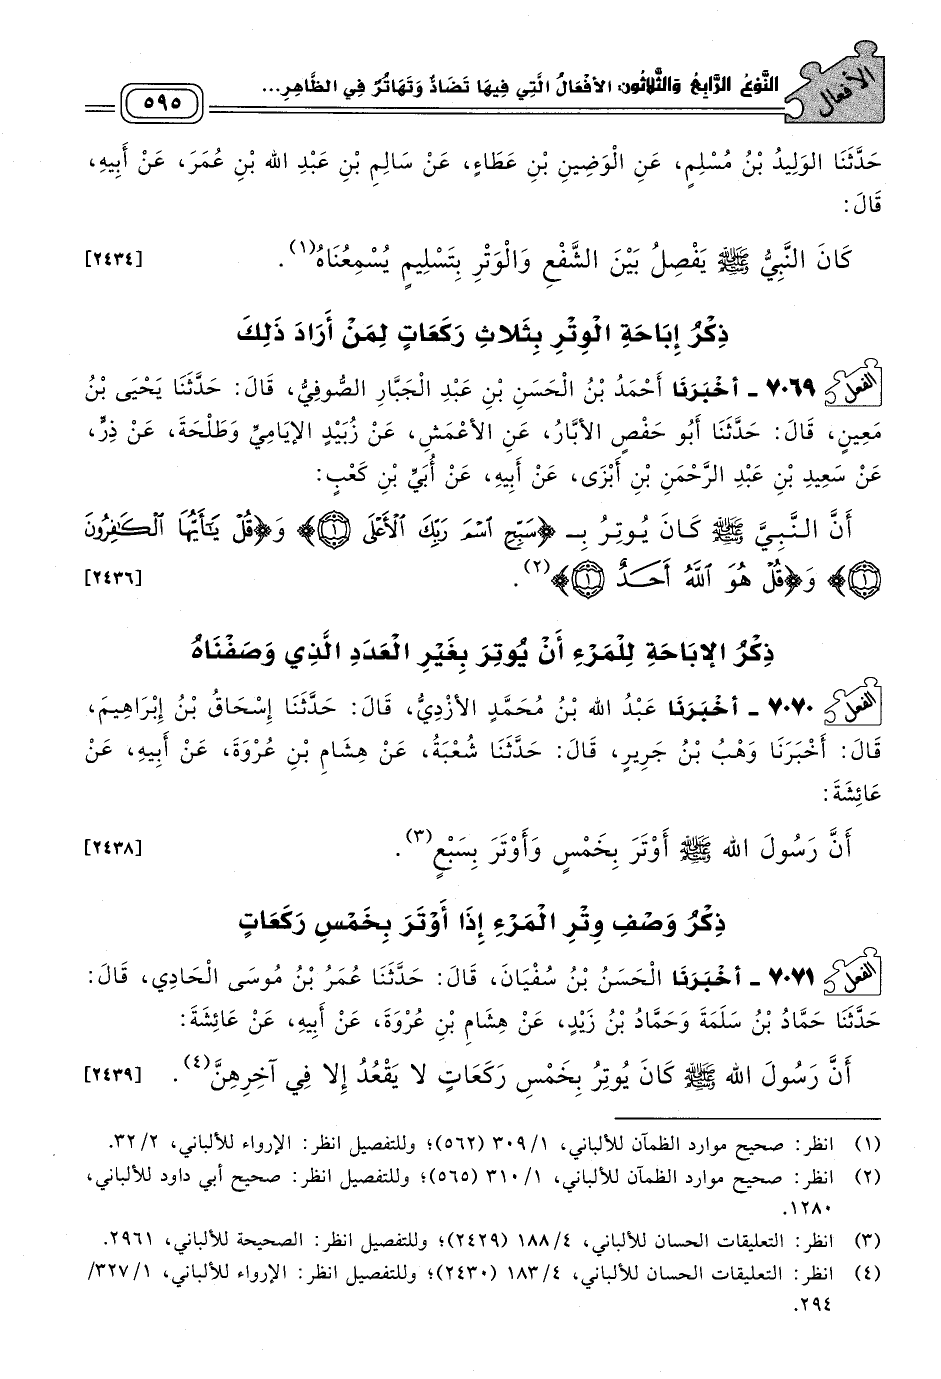 الأفعال
النَّوْعُ الرَّابِعُ وَالثَّلاثُون: الأَفْعَالُ الَّتِي فِيهَا تَضَادٌ وَتَهَاتُرٌ فِي الظَّاهِرِ...
٥٩٥
حَدَّثَنَا الوَلِيدُ بْنُ مُسْلِمٍ، عَنِ الْوَضِينِ بْنِ عَطَاءٍ، عَنْ سَالِمِ بْنِ عَبْدِ الله بْنِ عُمَرَ، عَنْ أَبِيهِ،
قَالَ:
كَانَ النَّبِيُّ ﷺ يَفْصِلُ بَيْنَ الشَّفْعِ وَالْوَتْرِ بِتَسْلِيمٍ يُسْمِعُنَاهُ(١). [٢٤٣٤]
ذِكْرُ إِبَاحَةِ الْوِتْرِ بِثَلاثِ رَكَعَاتٍ لِمَنْ أَرَادَ ذَلِكَ
الفعل ٧٠٦٩ - أخْبَرَنَا أَحْمَدُ بْنُ الْحَسَنِ بْنِ عَبْدِ الْجَبَّارِ الصُّوفِيُّ، قَالَ: حَدَّثَنَا يَحْيَى بْنُ
مَعِينٍ، قَالَ: حَدَّثَنَا أَبُو حَفْصٍ الأَبَّارُ، عَنِ الأَعْمَشِ، عَنْ زُبَيْدٍ الإِيَامِيِّ وَطَلْحَةَ، عَنْ ذِرٍّ،
عَنْ سَعِيدِ بْنِ عَبْدِ الرَّحْمَنِ بْنِ أَبْزَى، عَنْ أَبِيهِ، عَنْ أُبَيِّ بْنِ كَعْبٍ:
أَنَّ النَّبِيَّ ﷺ كَانَ يُوتِرُ بِـ ﴿سَبِّحِ ٱسْمَ رَبِّكَ ٱلْأَعْلَى ١﴾ وَ﴿قُلْ يَٰٓأَيُّهَا ٱلْكَٰفِرُونَ
١﴾ وَ﴿قُلْ هُوَ ٱللَّهُ أَحَدٌ ١﴾(٢). [٢٤٣٦]
ذِكْرُ الإبَاحَةِ لِلْمَرْءِ أَنْ يُوتِرَ بِغَيْرِ الْعَدَدِ الَّذِي وَصَفْنَاهُ
الفعل ٧٠٧٠ - أخْبَرَنَا عَبْدُ الله بْنُ مُحَمَّدٍ الأَزْدِيُّ، قَالَ: حَدَّثَنَا إِسْحَاقُ بْنُ إِبْرَاهِيمَ،
قَالَ: أَخْبَرَنَا وَهْبُ بْنُ جَرِيرٍ، قَالَ: حَدَّثَنَا شُعْبَةُ، عَنْ هِشَامِ بْنِ عُرْوَةَ، عَنْ أَبِيهِ، عَنْ
عَائِشَةَ:
أَنَّ رَسُولَ الله ﷺ أَوْتَرَ بِخَمْسٍ وَأَوْتَرَ بِسَبْعٍ(٣). [٢٤٣٨]
ذِكْرُ وَصْفِ وِتْرِ الْمَرْءِ إِذَا أَوْتَرَ بِخَمْسِ رَكَعَاتٍ
الفعل ٧٠٧١ - أخْبَرَنَا الْحَسَنُ بْنُ سُفْيَانَ، قَالَ: حَدَّثَنَا عُمَرُ بْنُ مُوسَى الْحَادِي، قَالَ:
حَدَّثَنَا حَمَّادُ بْنُ سَلَمَةَ وَحَمَّادُ بْنُ زَيْدٍ، عَنْ هِشَامِ بْنِ عُرْوَةَ، عَنْ أَبِيهِ، عَنْ عَائِشَةَ:
أَنَّ رَسُولَ الله ﷺ كَانَ يُوتِرُ بِخَمْسِ رَكَعَاتٍ لا يَقْعُدُ إِلا فِي آخِرِهِنَّ(٤). [٢٤٣٩]
(١) انظر: صحيح موارد الظمآن للألباني، ٣٠٩/١ (٥٦٢)؛ وللتفصيل انظر: الإرواء للألباني، ٣٢/٢.
(٢) انظر: صحيح موارد الظمآن للألباني، ٣١٠/١ (٥٦٥)؛ وللتفصيل انظر: صحيح أبي داود للألباني،
١٢٨٠.
(٣) انظر: التعليقات الحسان للألباني، ١٨٨/٤ (٢٤٢٩)؛ وللتفصيل انظر: الصحيحة للألباني، ٢٩٦١.
(٤) انظر: التعليقات الحسان للألباني، ١٨٣/٤ (٢٤٣٠)؛ وللتفصيل انظر: الإرواء للألباني، ٣٢٧/١/
٢٩٤.